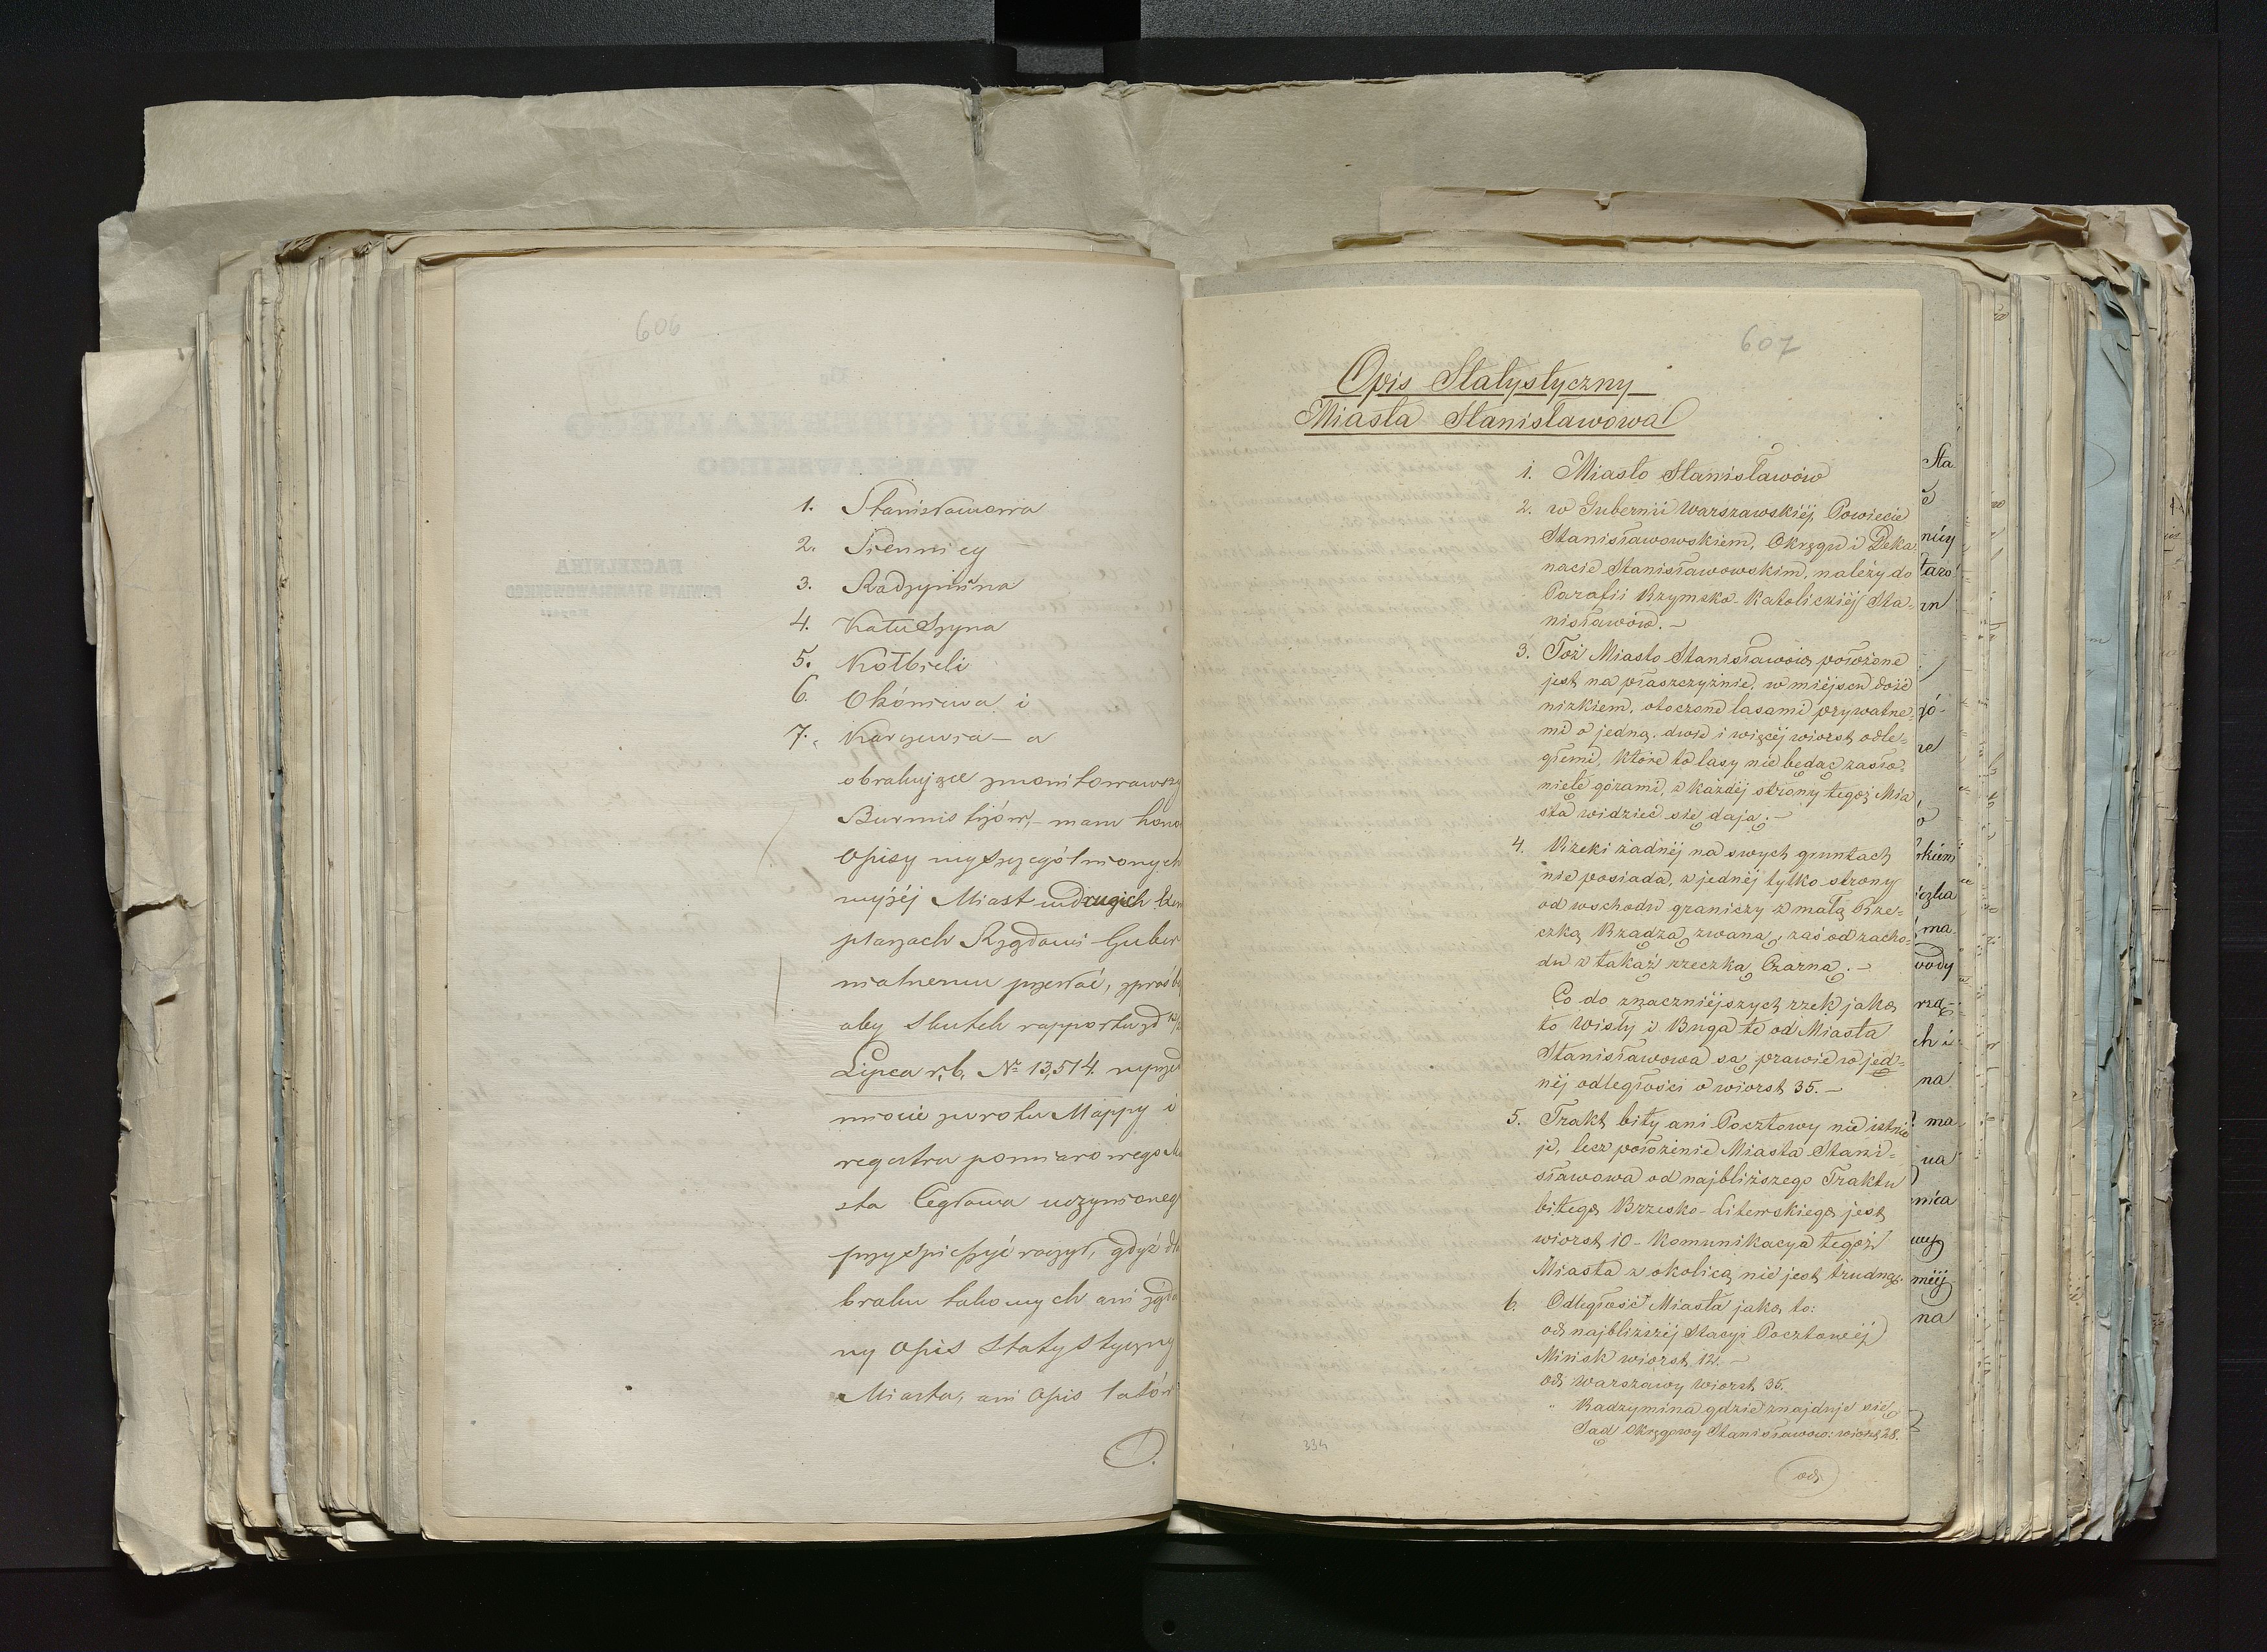 606
1. Stanisławowa
2. Siennicy
3. Radzymina
4. Kałuszyna
5. Kołbieli
6. Okóniewa i
7. Karczewia – a
obrakujące zmonitowawszy
Burmistrzów, – mam hono
Opisy wyszczególnionych
wyżéj Miast w drugich Exem
plarzach Rządowi Guber
nialnemu przesłać, z prośbą
aby skutek rapportu z d
Lipca r. b. Nº 13,514. w przed
miocie zwrotu Mappy i
regestru pomiarowego Mia
sta Cegłowa uczynionego
przyspieszyć raczył, gdyż dla
braku takowych ani żąda
ny Opis Statystyczny
Miasta, ani Opis
607
Opis Statystyczny
Miasta Stanisławowa
1. Miasto Stanisławów
2. w Gubernii Warszawskiéj, Powiecie
Stanisławowskiem, Okręgu i Deka
nacie Stanisławowskim, należy do
Parafii Rzymsko-Katolickiéj Sta-
nisławów. –
3. Toż Miasto Stanisławów położone
jest na płaszczyźnie, w miéjscu dość
nizkiem, otoczone lasami prywatne-
mi o jedną, dwie i więcéj wiorst odle-
głemi, które to lasy nie będąc zasło-
nięte górami, z każdéj strony tegoż Mia
sta widzieć się dają. –
4. Rzeki żadnéj na swych gruntach
nie posiada, z jednéj tylko strony
od wschodu graniczy z małą Rze-
czką Rządzą zwaną, zaś od zacho-
du z takąż rzeczką Czarną. –
Co do znaczniéjszych rzek jako
to Wisły i Buga te od Miasta
Stanisławowa są prawie w jed-
néj odległości o wiorst 35. –
5. Trakt bity ani Pocztowy nie istnie
je, lecz położenie Miasta Stani-
sławowa od najbliższego Traktu
bitego Brzesko-Litewskiego jest
wiorst 10 – Komunikacya tegoż
Miasta z okolicą nie jest trudną.
6. Odległość Miasta jako to:
od najbliższéj Stacyi Pocztowéj
Mińsk wiorst 12. –
od Warszawy wiorst 35.
" Radzymina gdzie znajduje się
Sąd Okręgowy Stanisławow: wiorst 28.
od
334